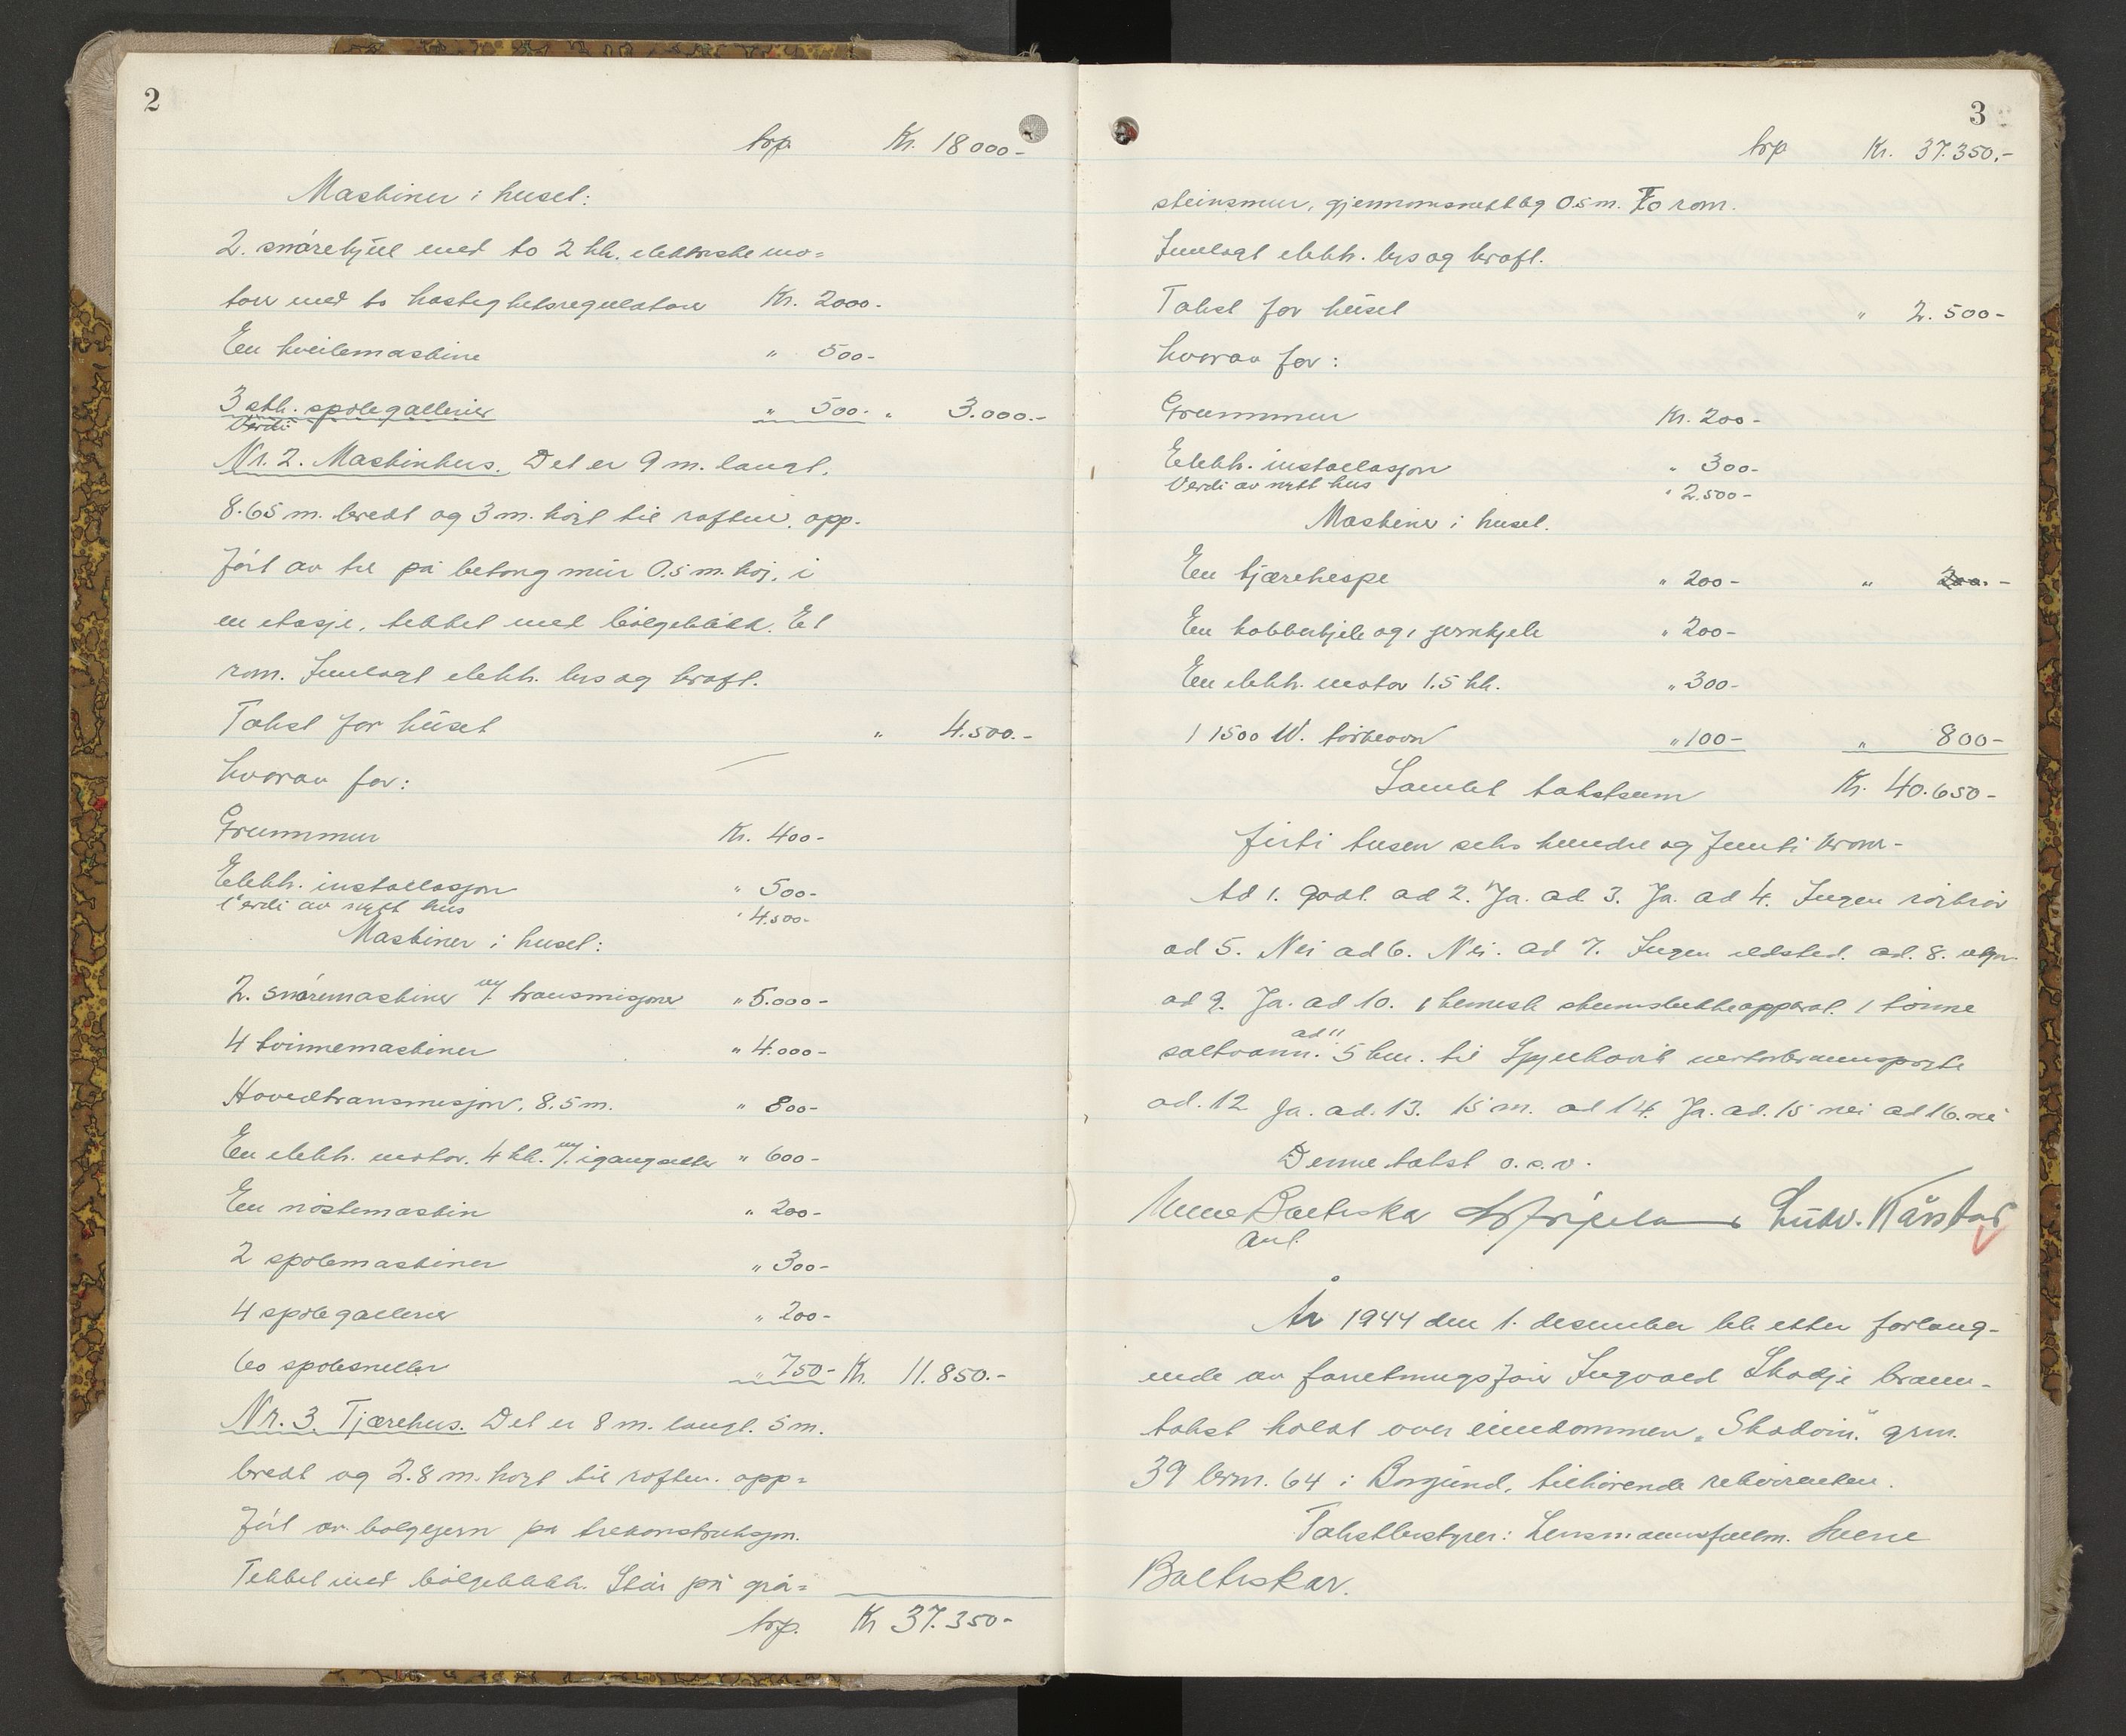 2
trp Kr. 18000-
Maskiner i huset:
2. snårehjul med to 2 hk. elektriske mo=
torer med to hastighetsregulatorer Kr. 2000.
En kveilemaskine " 500-
3 stk. spolegallerier " 500. " 3.000.-
Verdi
Nr. 2. Maskinhus. Det er 9 m. langt,
8.65 m. bredt og 3 m. høit til raftene, opp-
ført av tre på betongmur 0.5 m. høi, i
en etasje, tekket med bølgeblikk. Et
rom. Innlagt elektr. lys og kraft.
Takst for huset " 4.500.-
hvorav for:
Grunnmur Kr. 400-
Elektr. installasjon " 500-
Verdi av nytt hus " 4.500-
Maskiner i huset:
2. snåremaskiner m/ transmisjoner " 5.000-
4 tvinnemaskiner " 4.000-
Hovedtransmisjon, 8.5 m. " 800-
En elektr. motor. 4 hk. m/ igangsetter " 600-
En nøstemaskin " 200-
2 spolemaskiner " 300-
4 spolegallerier " 200-
60 spolesneller " 750- Kr. 11.850.-
Nr. 3. Tjærehus. Det er 8 m. langt. 5 m.
bredt og 2.8 m. høit til raftene. opp=
ført av bølgejern på trekonstruksjon.
Tekket med bølgeblikk. Står på grå=
trp. Kr 37.350-
3
trp Kr. 37.350.-
steinsmur, gjennomsnittlig 0.5 m. To rom.
Innlagt elektr. lys og kraft.
Takst for huset " 2.500-
hvorav for:
Grunnmur Kr. 200-
Elektr. installasjon " 300-
Verdi av nytt hus " 2.500-
Maskiner i huset.
En tjærehespe " 200- " 200.-
En kobberkjele og 1 jernkjele " 200-
En elektr. motor 1.5 hk. " 300-
1 1500 W. tørkeovn " 100- " 800-
Samlet takstsum Kr. 40.650-
førti tusen seks hundre og femti kroner-
Ad 1. godt. ad 2. Ja. ad 3. Ja. ad 4. Ingen
ad 5. Nei ad 6. Nei. ad 7. Ingen ildsted. ad. 8.
ad 9. Ja. ad 10. 1 kemisk slukkeapparat. 1 tønne
saltvann. ad 11 5 km. til motorbrannsprøite
ad. 12 Ja. ad. 13. 15 m. ad 14. Ja. ad. 15 nei ad 16. nei
Denne takst o.s.v.
Balteskar Ludv. Kårstad
År 1944 den 1. desember ble etter forlang-
ende av forretningsfører Ingvald Skodje brann-
takst holdt over eiendommen "Skodvin" grnr.
39 brnr. 64 i Borgund, tilhørende rekvirenten.
Takstbestyrer: Lensmannsfullm.
Balteskar.